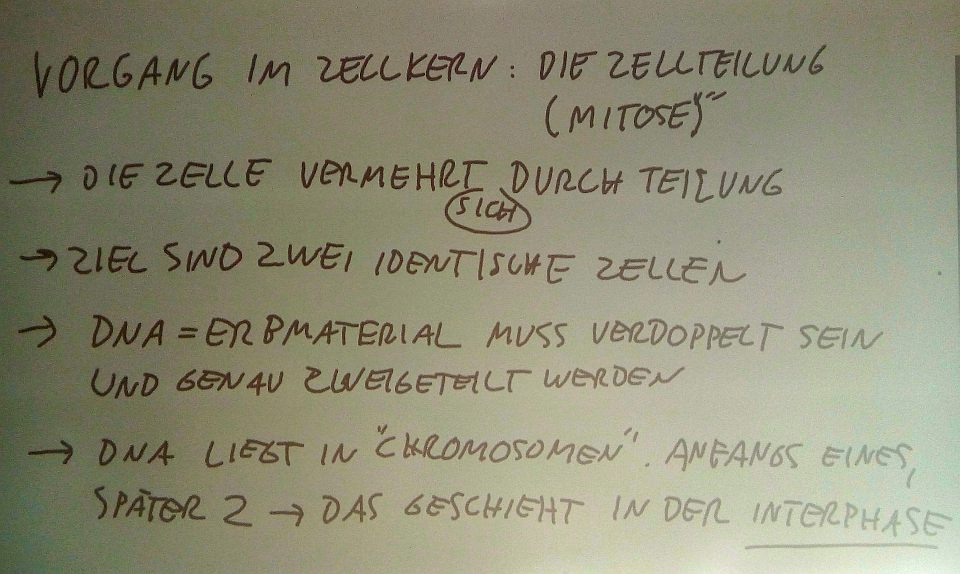 VORGANG IM ZELLKERN: DIE ZELLTEILUNG
(MITOSE)"
→ DIE ZELLE VERMEHRT DURCH TEILUNG
SICH
→ ZIEL SIND ZWEI IDENTISCHE ZELLEN
→ DNA = ERBMATERIAL MUSS VERDOPPELT SEIN
UND GENAU ZWEIGETEILT WERDEN
→ DNA LIEGT IN "CHROMOSOMEN". ANFANGS EINES,
SPÄTER 2 → DAS GESCHIEHT IN DER INTERPHASE